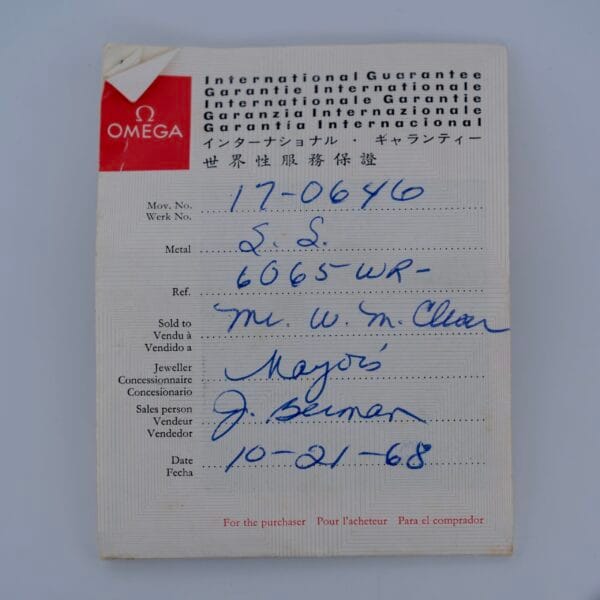 Ω
OMEGA
International Guarantee
Garantie Internationale
Internationale Garantie
Garanzia Internazionale
Garantía Internacional
インターナショナル・ギャランティー
世界性服務保證
Mov. No. 17-0646
Werk No.
Metal S. S.
Ref. 6065WR-
Sold to Mr. W. M.
Vendu à
Vendido a
Jeweller Mayor's
Concessionnaire
Concesionario
Sales person J. Berman
Vendeur
Vendedor
Date 10-21-68
Fecha
For the purchaser Pour l'acheteur Para el comprador